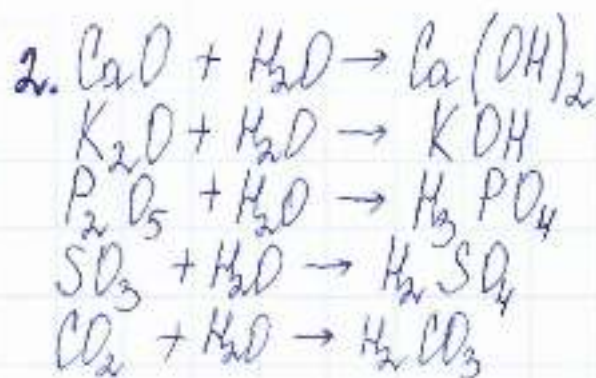 2. CaO + H₂O → Ca(OH)₂
K₂O + H₂O → KOH
P₂O₅ + H₂O → H₃PO₄
SO₃ + H₂O → H₂SO₄
CO₂ + H₂O → H₂CO₃